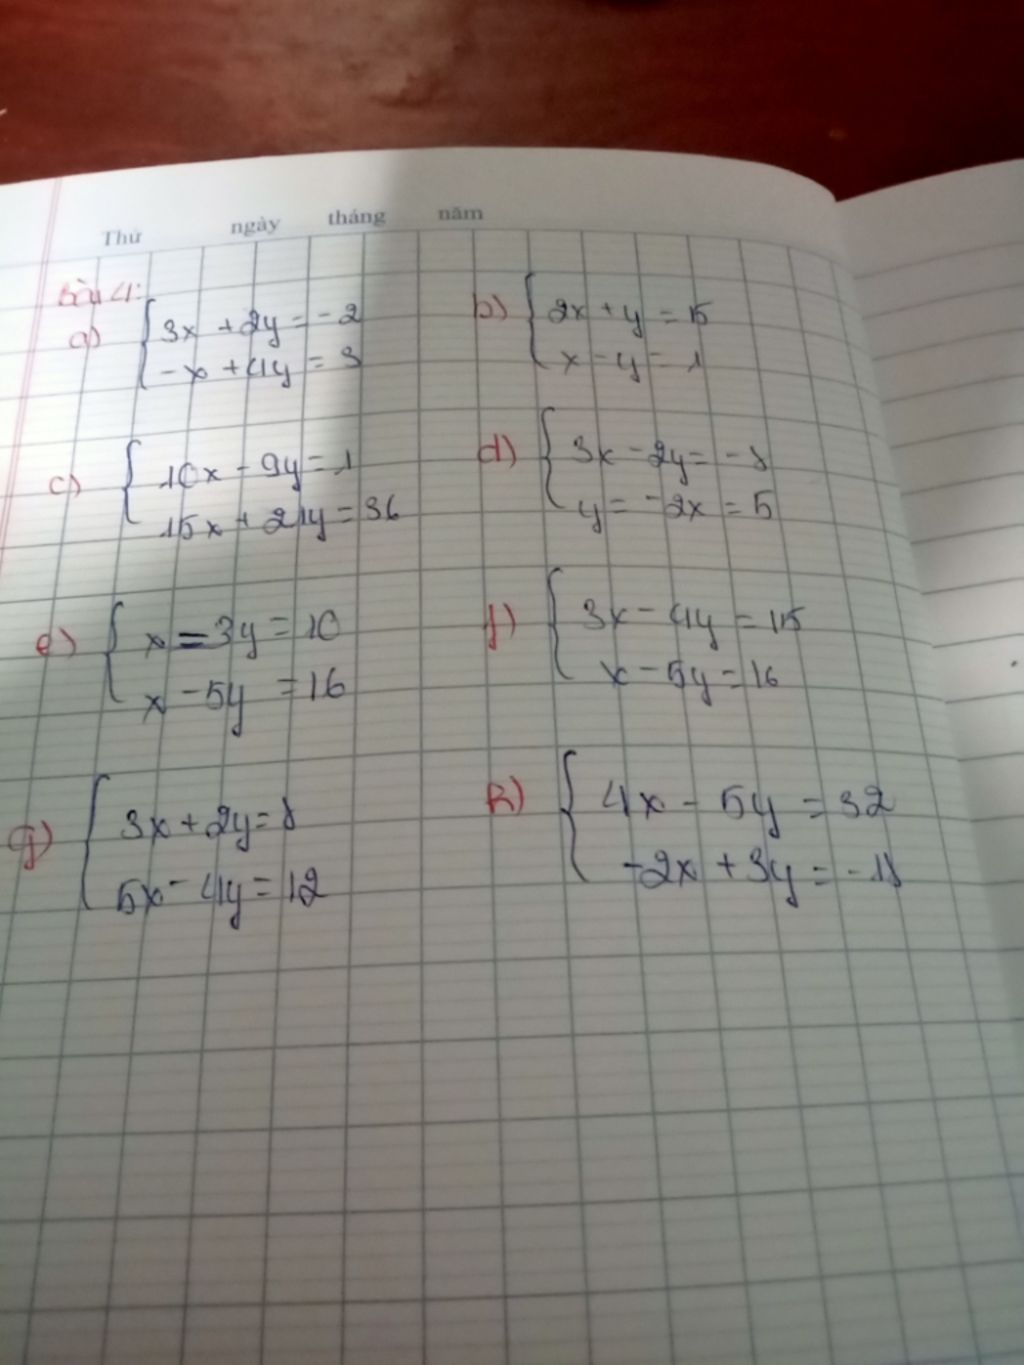 Thứ ngày tháng năm
Bài 4:
a) { 3x + 2y = -2
-x + 4y = 3
b) { 2x + y = 15
x - y = 1
c) { 10x - 9y = 1
15x + 21y = 36
d) { 3x - 2y = -8
y = -2x = 5
e) { x = 3y = 10
x - 5y = 16
f) { 3x - 4y = 115
x - 5y = 16
g) { 3x + 2y = 8
5x - 4y = 12
h) { 4x - 5y = 32
-2x + 3y = -18